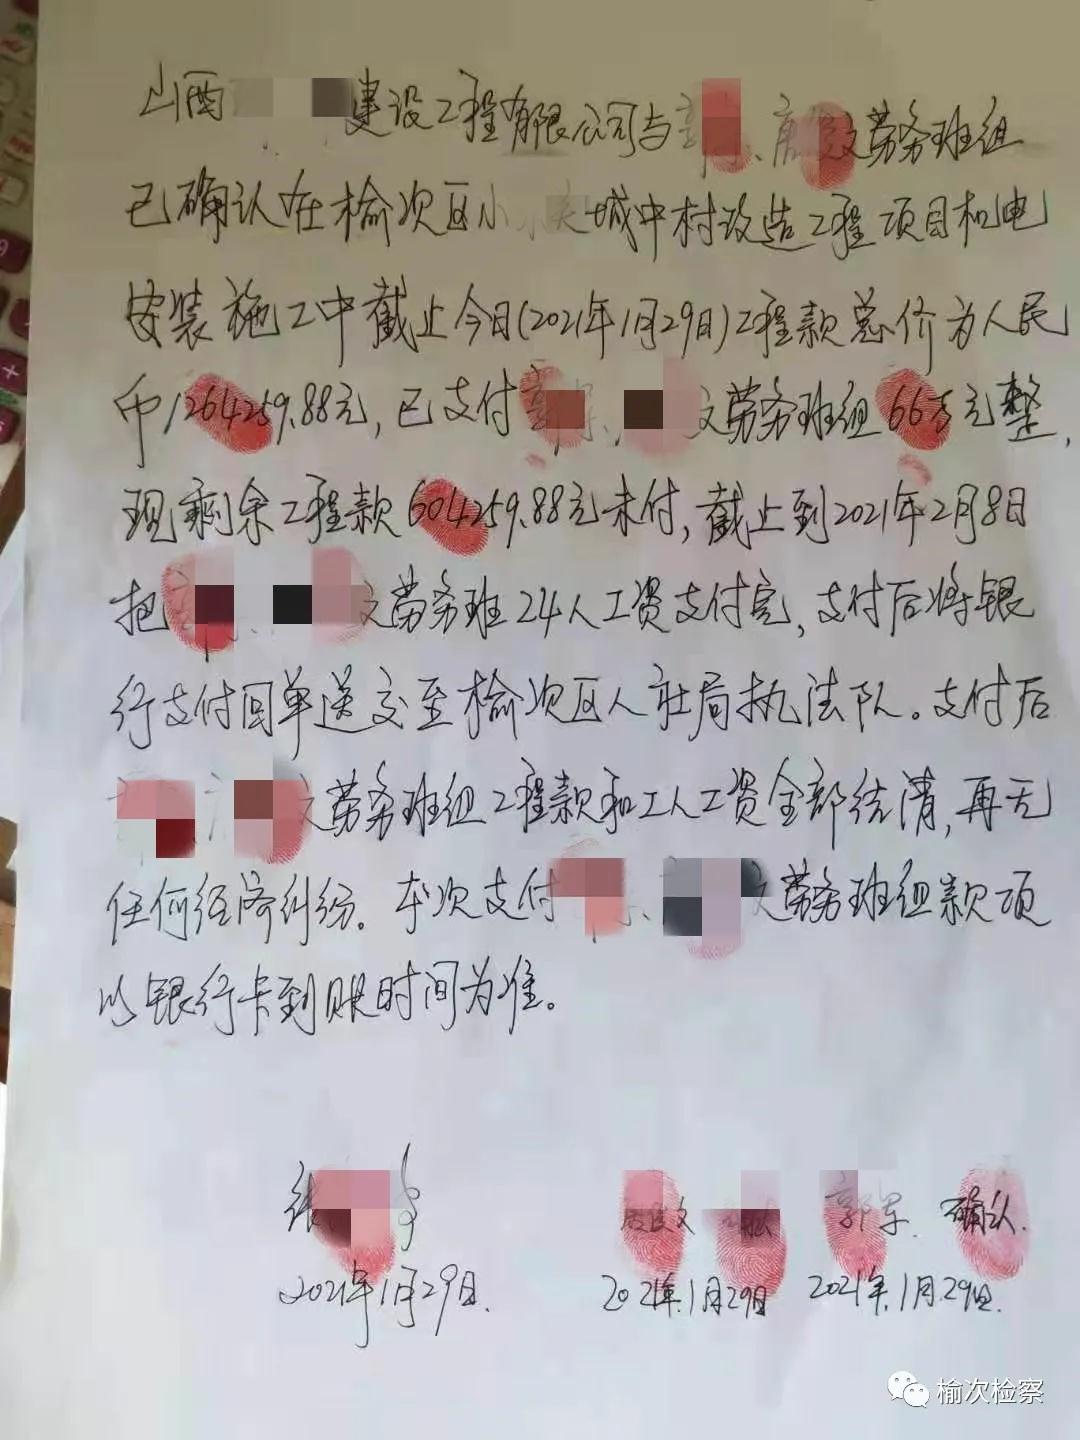 山西 建设工程有限公司与 、 文劳务班组
已确认在榆次区小 城中村改造工程项目机电
安装施工中截止今日(2021年1月29日)工程款总价为人民
币1264259.88元,已支付 、 文劳务班组66万元整,
现剩余工程款604259.88元未付,截止到2021年2月8日
把 文劳务班24人工资支付完,支付后将银
行支付回单送交至榆次区人社局执法队。支付后
文劳务班组工程款和工人工资全部结清,再无
任何经济纠纷。本次支付 、 文劳务班组款项
以银行卡到账时间为准。
张 文 郭军. 确认.
2021年1月29日. 2021年.1月29日 2021年.1月.29日.
榆次检察